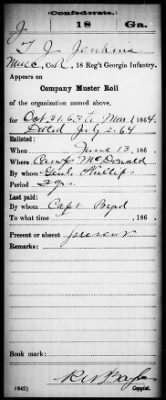 Confederate.
J 18 Ga.
T J Jenkins
Co. 18 Reg't Georgia Infantry.
Appears on
Company Muster Roll
of the organization named above,
for Oct 31, 63 to Mar 1, 1864.
Dated July 2, 64
Enlisted:
When June 13, 186
Where Camp McDonald
By whom Genl Phillips
Period 3 yrs.
Last paid:
By whom Capt Byrd
To what time , 186 .
Present or absent Present
Remarks:
Book mark:
(642) Copyist.